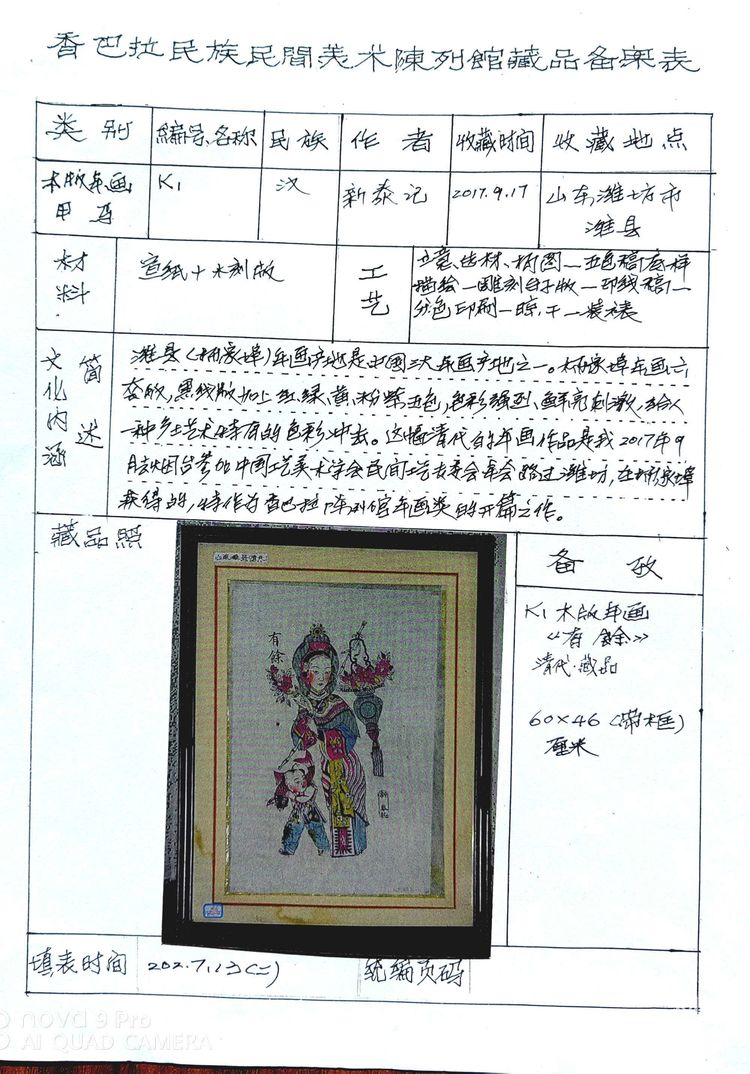 香巴拉民族民間美术陳列館藏品备案表
类别 編号、名称 民族 作者 收藏时间 收藏地点
木版年画 K1 汉 新泰记 2017.9.17 山东潍坊市
甲马 潍县
材料 宣纸+木刻版 工艺 立意、选材、构图—五色稿底样
描绘—雕刻印版—印线稿—
分色印刷—晾、干—装裱
文化内涵 简述
潍县(杨家埠)年画产地是中国三大年画产地之一。杨家埠年画六
套版,黑线版加上红、绿、黄、粉紫五色,色彩强烈、鲜亮刺激,给人
一种乡土艺术特有的色彩冲击。这幅清代的年画作品是我2017年9
月去烟台参加中国工艺美术学会民间工艺专委会年会路过潍坊,在杨家埠
获得的,特作为香巴拉陈列馆年画类的开篇之作。
藏品照 备攷
K1 木版年画
《有餘》
清代·藏品
60×46(带框)
厘米
有餘
新泰記
填表时间 统编页码
nova 9 Pro
AI QUAD CAMERA